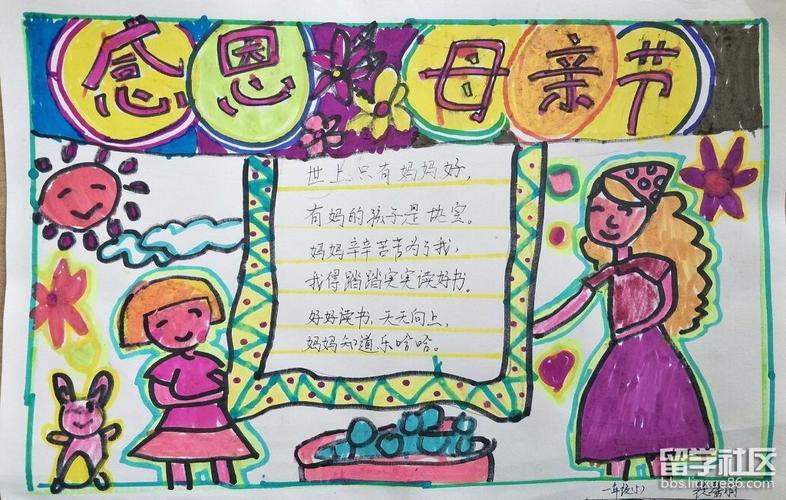 感恩母亲节
世上只有妈妈好，
有妈的孩子是块宝。
妈妈辛辛苦苦为了我，
我得踏踏实实读好书。
好好读书，天天向上，
妈妈知道乐哈哈。
留学社区
bbs.liuxue86.com